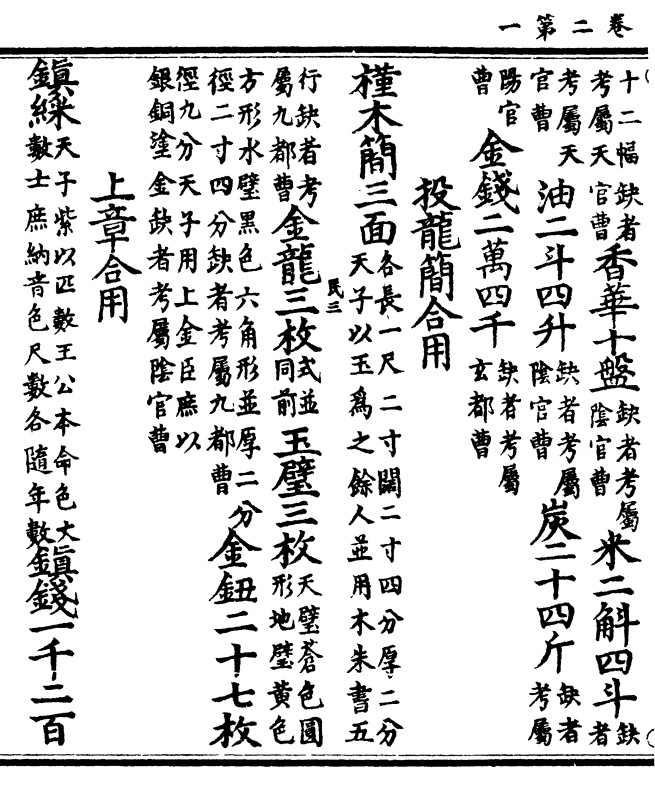 卷二第一
十二幅缺者考屬天官曹香華十盤缺者考屬陰官曹米二斛四斗缺者
考屬天官曹油二斗四升缺者考屬陰官曹炭二十四斤缺者考屬
陽官曹金錢二萬四千缺者考屬玄都曹
投龍簡合用
槿木簡三面各長一尺二寸闊二寸四分厚二分天子以玉為之餘人並用木朱書五
民三
行缺者考屬九都曹金龍三枚式並同前玉璧三枚天璧蒼色圓形地璧黃色
方形水璧黑色六角形並厚二分徑二寸四分缺者考屬九都曹金鈕二十七枚
徑九分天子用上金臣庶以銀銅塗金缺者考屬陰官曹
上章合用
鎮綵天子紫以匹數王公本命色丈數士庶納音色尺數各隨年數鎮錢一千二百